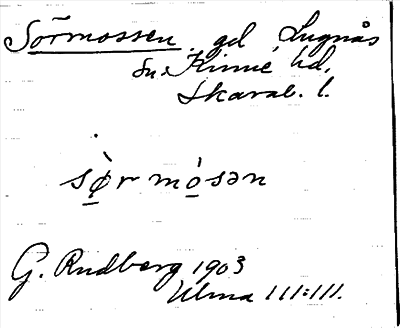 Sörmossen, gd Lugnås
sn. Kinne hd,
Skarab. l.
sø̀r mósən
G. Rudberg 1903
Ulma 111:111.